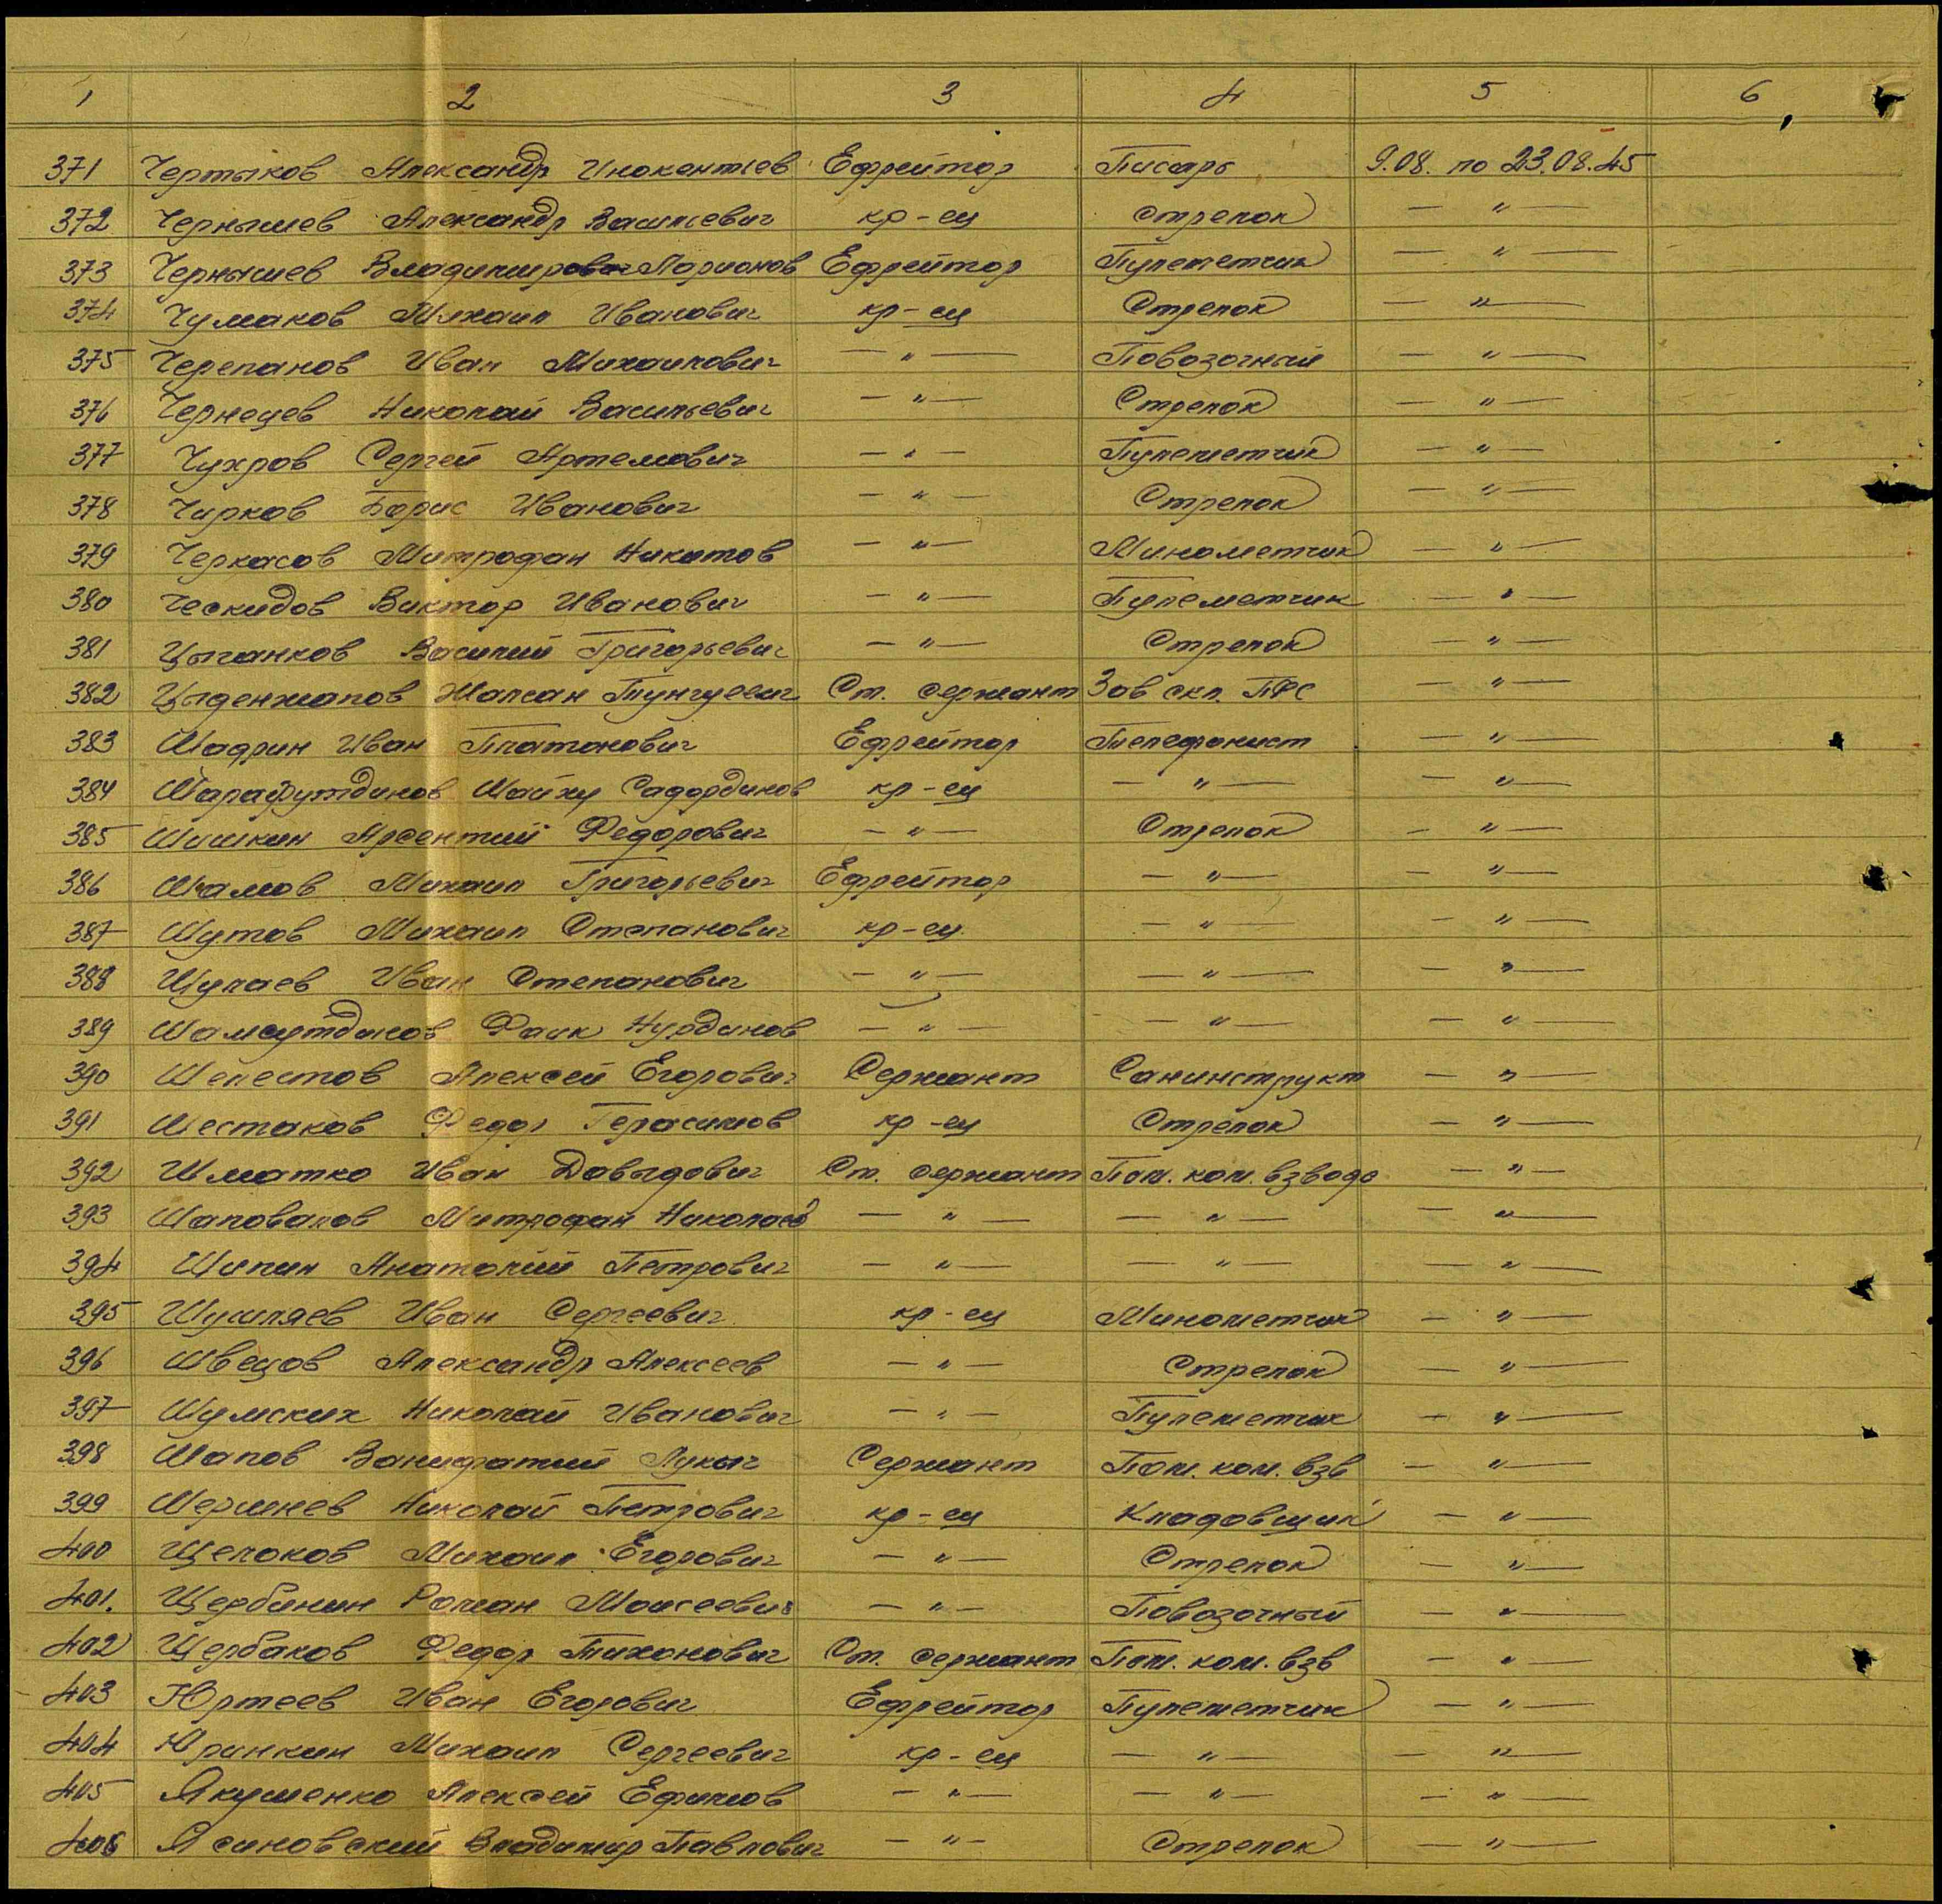 1 2 3 4 5 6
371 Чертыков Александр Инокентьев Ефрейтор Писарь 9.08. по 23.08.45
372 Чернышев Александр Васильевич кр-ец Стрелок — " —
373 Чернышев Владимир Ларионов Ефрейтор Пулеметчик — " —
374 Чумаков Михаил Иванович кр-ец Стрелок — " —
375 Черепанов Иван Михаилович — " — Повозочный — " —
376 Чернецев Николай Васильевич — " — Стрелок — " —
377 Чухров Сергей Артемович — " — Пулеметчик — " —
378 Чирков Борис Иванович — " — Стрелок — " —
379 Черкасов Митрофан Никитов — " — Минометчик — " —
380 Ческидов Виктор Иванович — " — Пулеметчик — " —
381 Цыганков Василий Григорьевич — " — Стрелок — " —
382 Цыденжапов Жапсан Тунгуевич Ст. сержант Зав скл. ПФС — " —
383 Шадрин Иван Платонович Ефрейтор Телефонист — " —
384 Шарафутдинов Шайху Садардинов кр-ец — " — — " —
385 Шишкин Арсентий Федорович — " — Стрелок — " —
386 Шамов Михаил Григорьевич Ефрейтор — " — — " —
387 Шутов Михаил Степанович кр-ец — " — — " —
388 Шулаев Иван Степанович — " — — " — — " —
389 Шамсутдинов Фаик Нурдинов — " — — " — — " —
390 Шелестов Алексей Егорович Сержант Санинструкт — " —
391 Шестаков Федор Герасимов кр-ец Стрелок — " —
392 Шматко Иван Давыдович Ст. сержант Пом. ком. взвода — " —
393 Шаповалов Митрофан Николаев — " — — " — — " —
394 Шипин Анатолий Петрович — " — — " — — " —
395 Шушляев Иван Сергеевич кр-ец Минометчик — " —
396 Швецов Александр Алексеев — " — Стрелок — " —
397 Шумских Николай Иванович — " — Пулеметчик — " —
398 Шапов Ванифатий Лукич Сержант Пом. ком. взв — " —
399 Шершнев Николай Петрович кр-ец Кладовщик — " —
400 Щелоков Михаил Егорович — " — Стрелок — " —
401. Щербинин Роман Моисеевич — " — Повозочный — " —
402 Щербаков Федор Тихонович Ст. сержант Пом. ком. взв — " —
403 Юртеев Иван Егорович Ефрейтор Пулеметчик — " —
404 Юринкин Михаил Сергеевич кр-ец — " — — " —
405 Якушенко Алексей Ефимов — " — — " — — " —
406 Ясиновский Владимир Павлович — " — Стрелок — " —